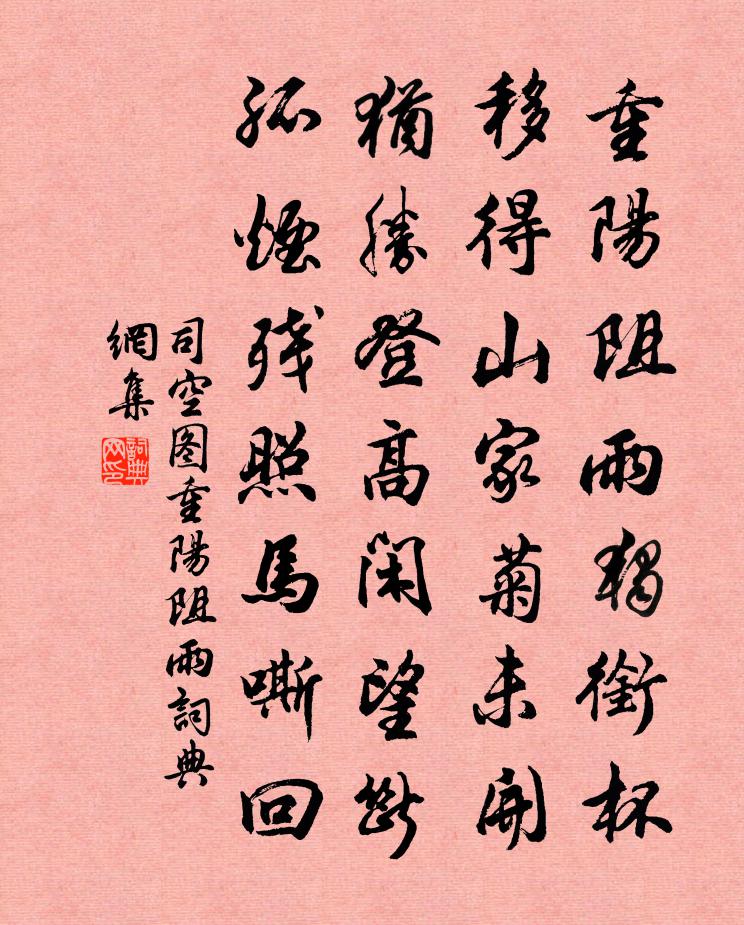 重陽阻雨獨銜杯
移得山家菊未開
猶勝登高閑望斷
孤煙残照馬嘶回
司空图重陽阻雨詞典
網集
詞典
网印